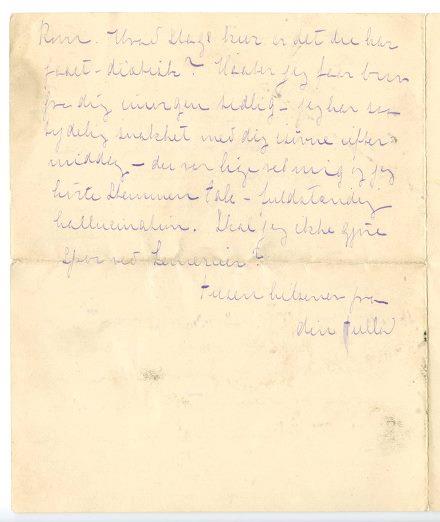 Rum. Hvad Slags Kur er det du har
faaet - diætetik? Haaber jeg faar brev
fra dig imorgen tidlig - jeg har saa
tydelig snakket med dig isøvne efter
middag - du ser lige vel mig og jeg
hørte Stemmen tale - fuldstændig
hallucination. Skal jeg ikke gjøre
ved Lemercier?
Tusen hilsener fra
din Tulla